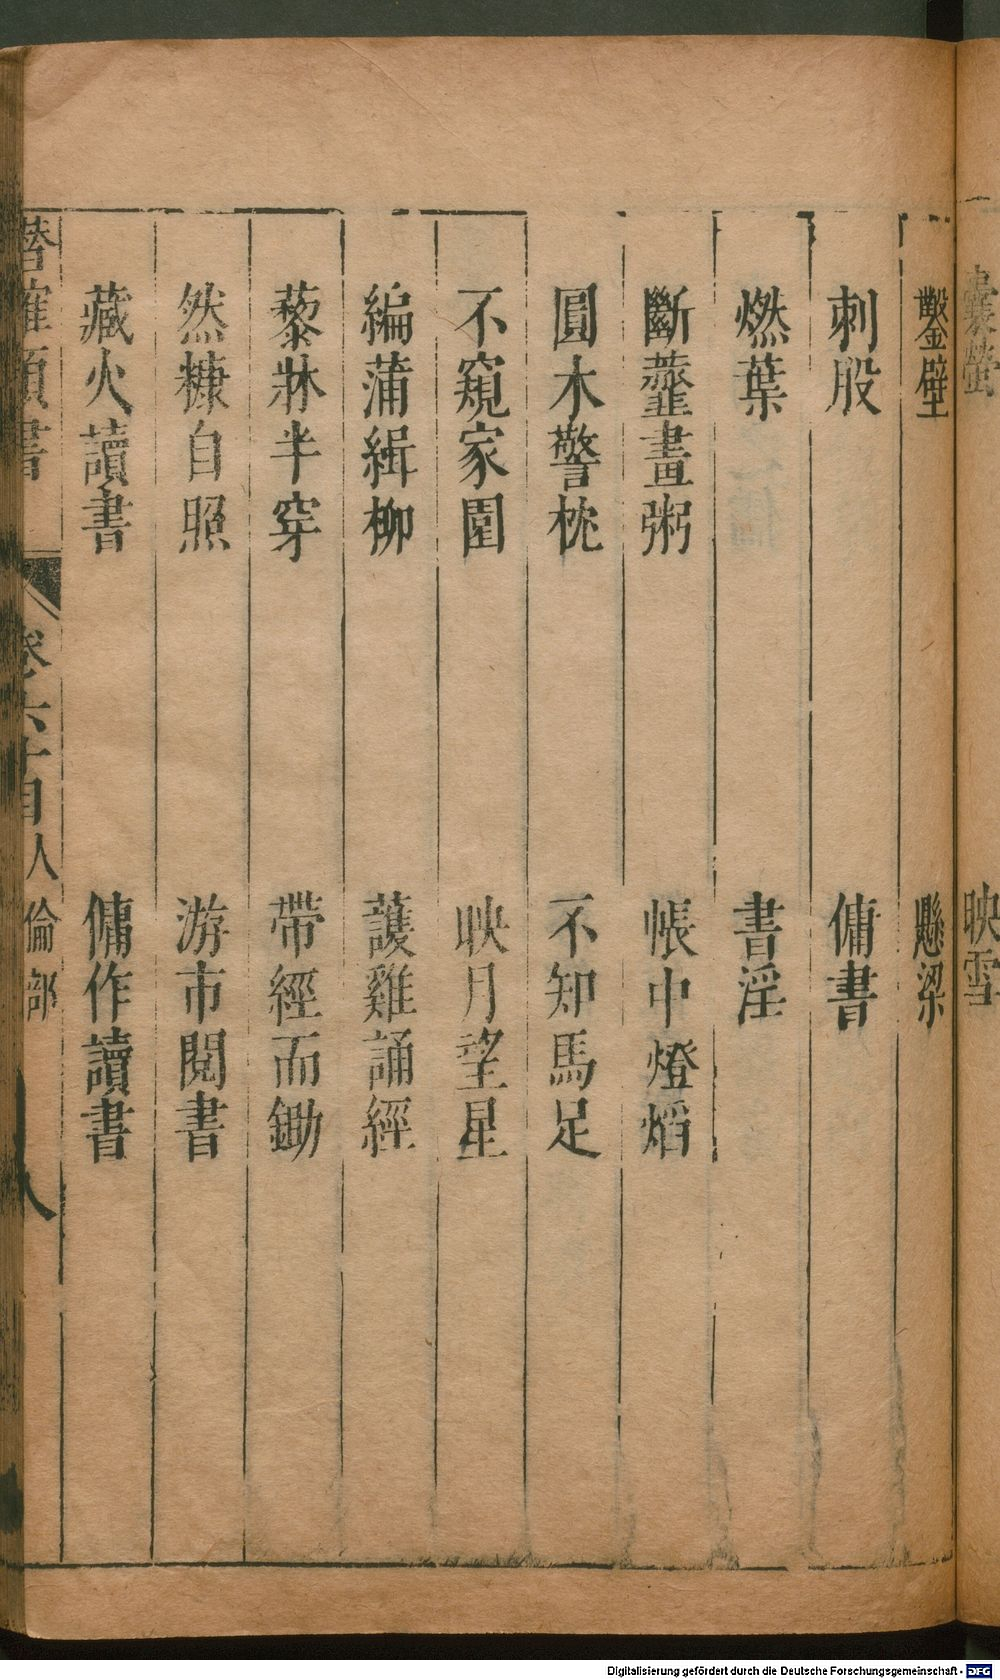 囊螢
映雪
鑿壁
懸梁
刺股
傭書
燃葉
書淫
斷虀畫粥
帳中燈熖
圓木警枕
不知馬足
不窺家園
映月望星
編蒲緝柳
護雞誦經
藜牀半穿
帶經而鋤
然糠自照
游市閱書
藏火讀書
傭作讀書
潛確類書
卷六十目
人倫部
八
Digitalisierung gefördert durch die Deutsche Forschungsgemeinschaft - DFG